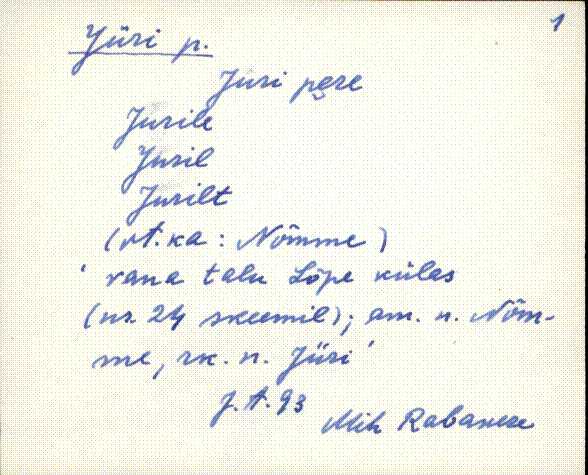 1
Jüri p.
Juri pere
Jurile
Juril
Jurilt
(vt. ka: Nõmme)
' vana talu Lõpe külas
(nr. 24 skeemil); am. n. Nõm-
me, rk. n. Jüri '
J. t. 93
Mih Rabanese